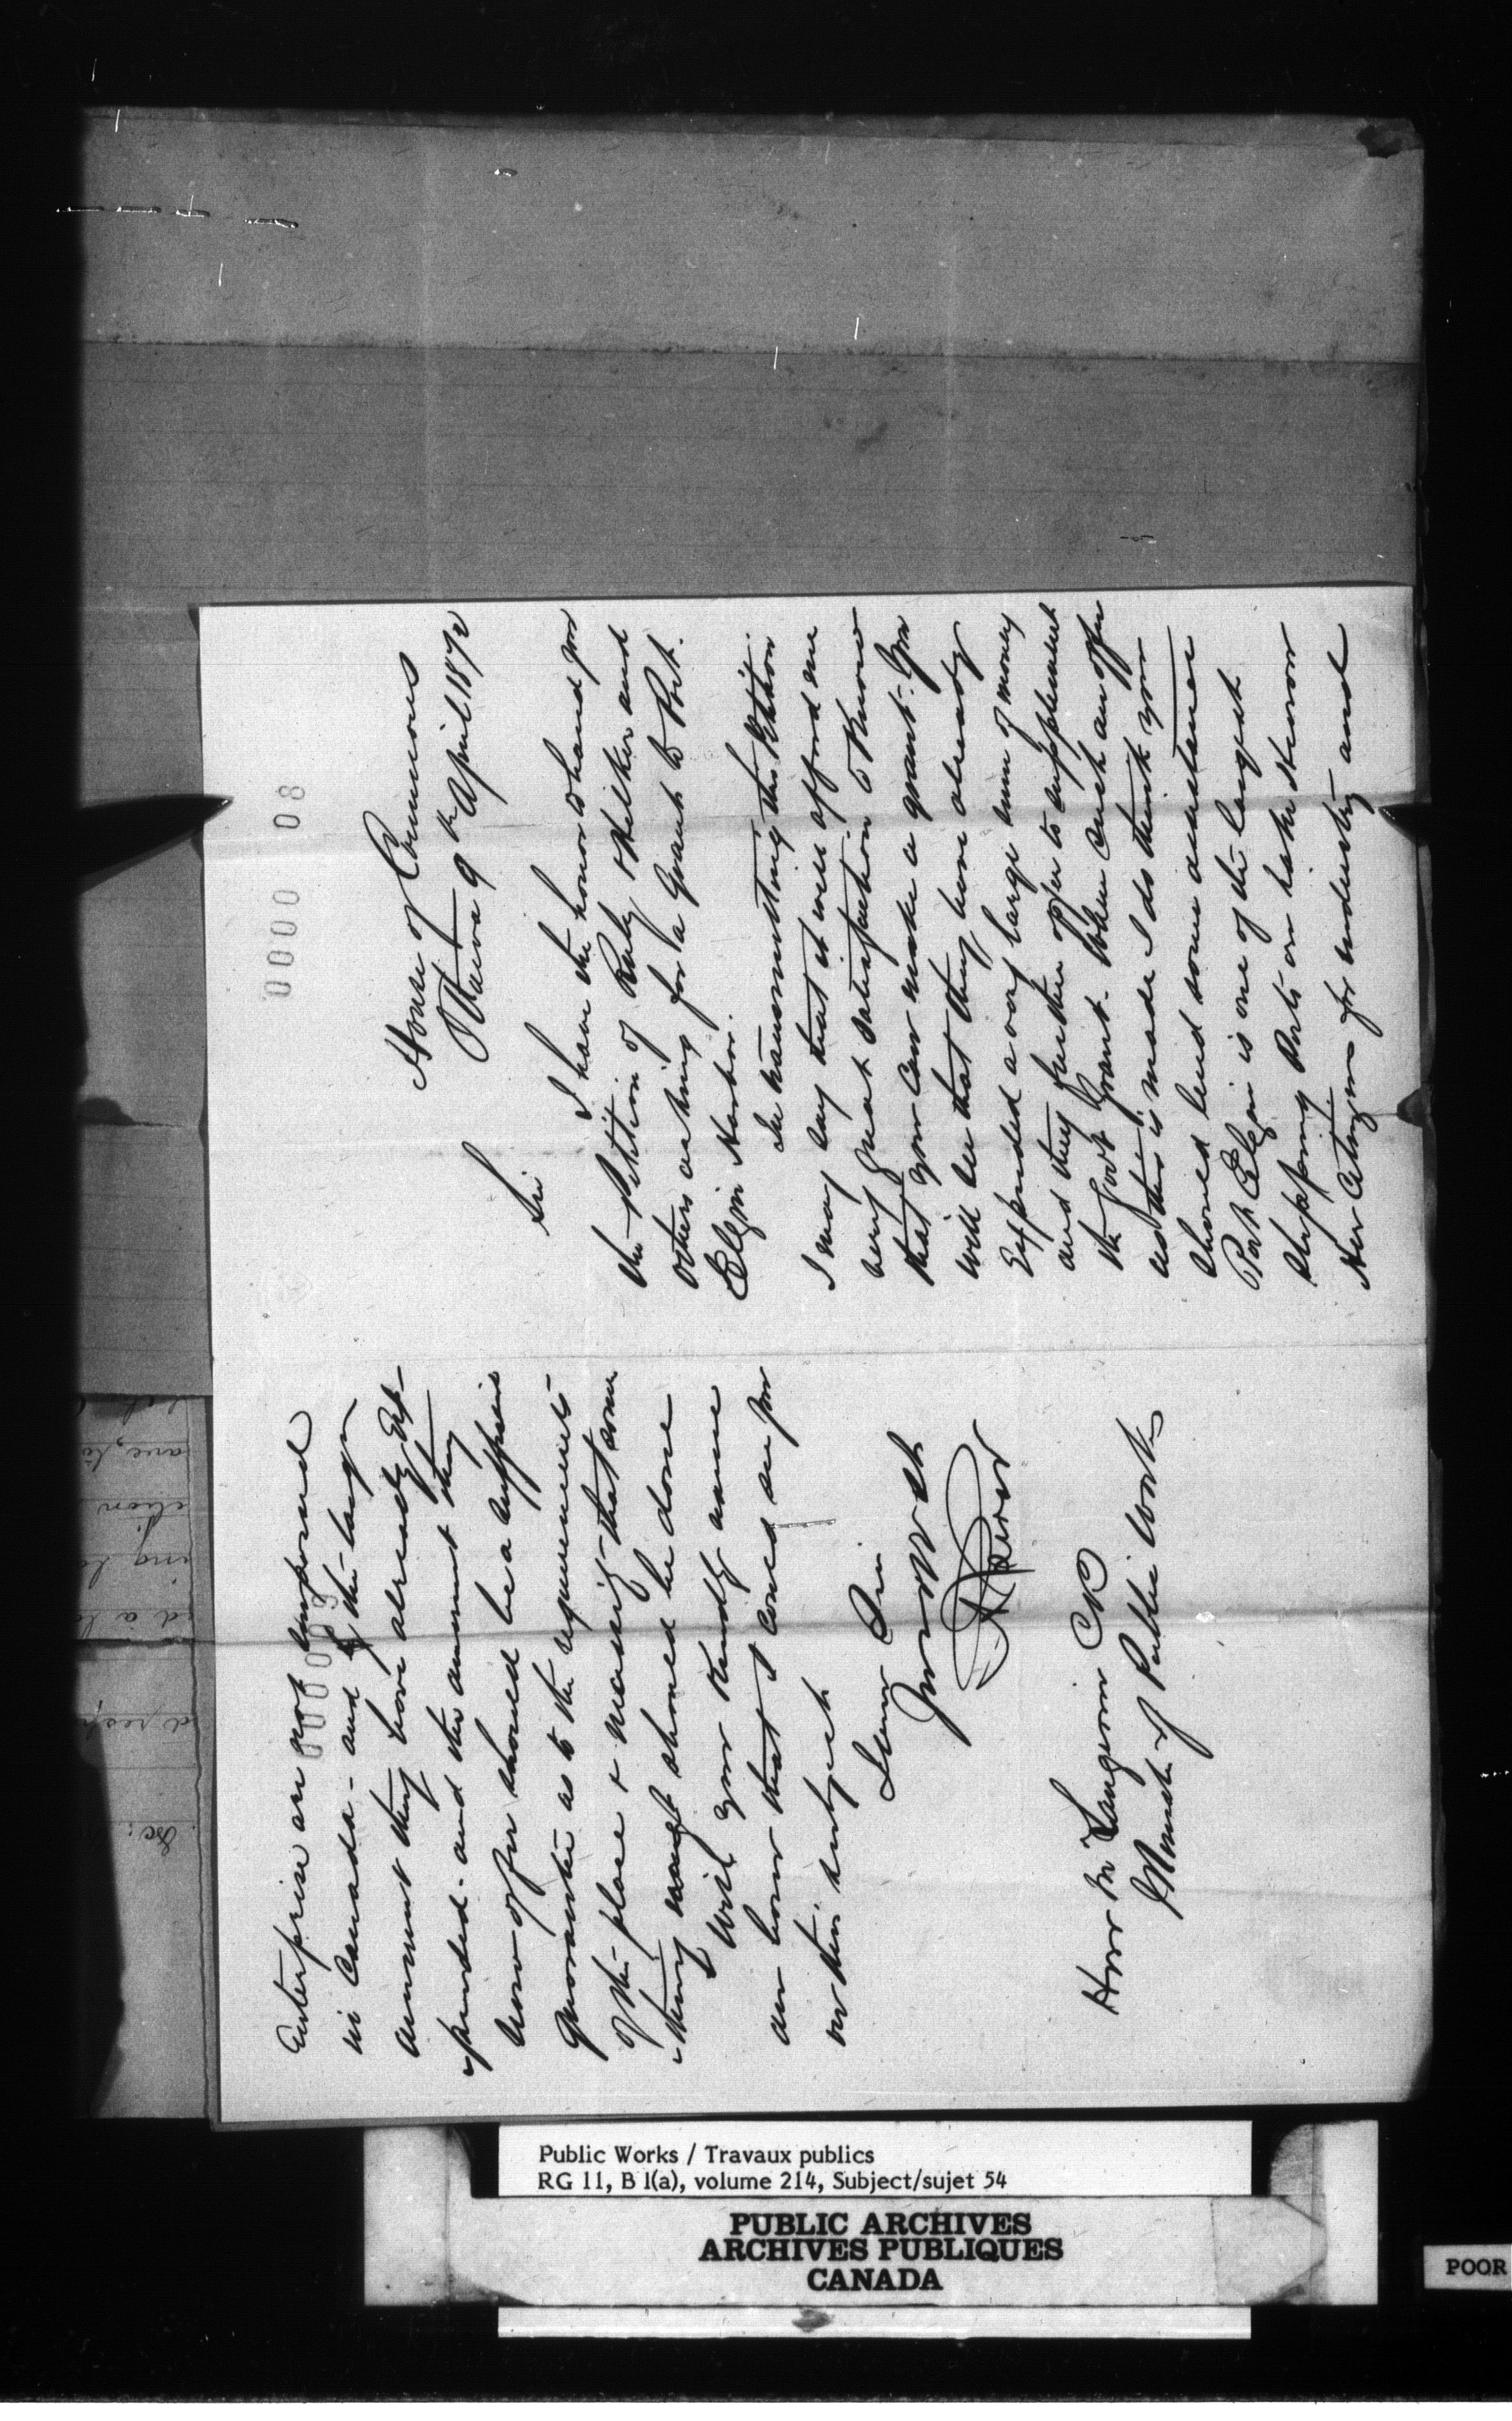 0000 08
House of Commons
Ottawa 9th April 1872
Sir
I have the honor to hand you
the Petition of Ruby & Hilker and
others asking for a Grant to Port
Elgin Harbor.
In transmitting this Petition
I may say that it will afford me
very great satisfaction to know
that you can make a grant. You
will see that they have already
expended a very large sum of money
and they further offer to supplement
the Govt Grant. When such an offer
as this is made I do think you
should lend some assistance
Port Elgin is one of the largest
shipping Ports on Lake Huron
Her Citizens for industry and
Enterprise are not surpassed
in Canada - and by the large
amount they have already Ex-
pended - and the amount they
now offer should be a sufficient
guarantee as to the requirements
of the place & necessity that some
thing should be done
I wish you kindly name
an hour that I could see you
on this subject
I am Sir
Your Ob St
Hon Mr Langevin CB
Minister of Public Works
Public Works / Travaux publics
RG 11, B 1(a), volume 214, Subject/sujet 54
PUBLIC ARCHIVES
ARCHIVES PUBLIQUES
CANADA
POOR